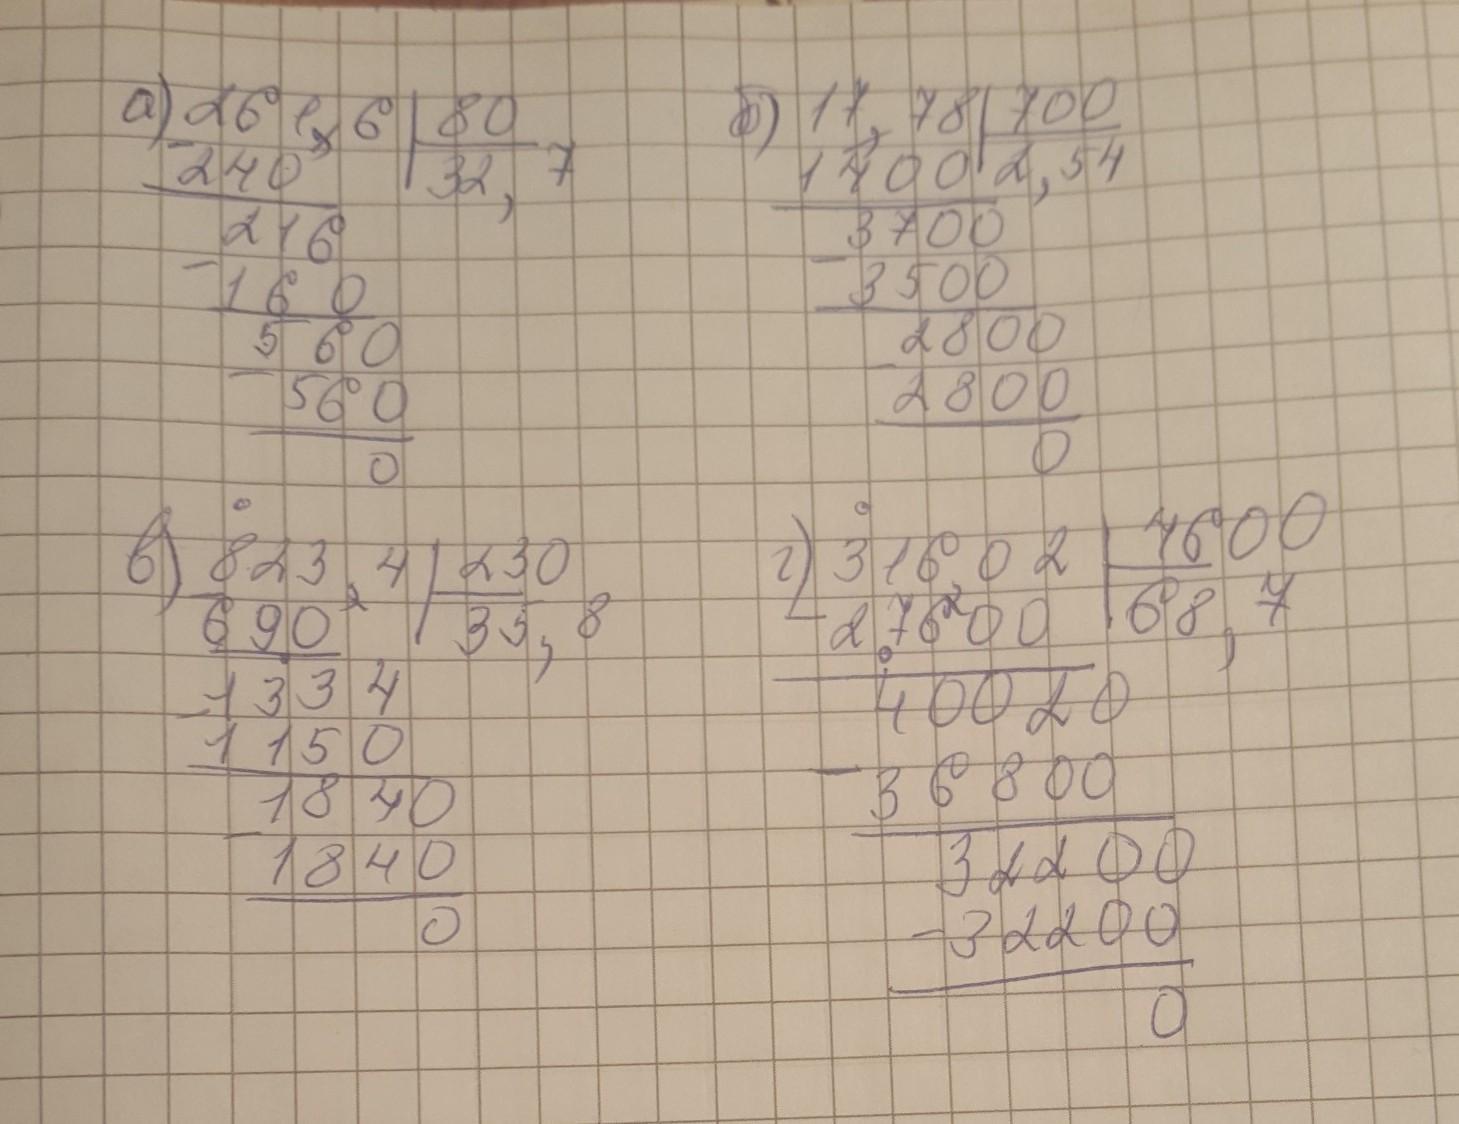 а) 261,6 | 80
- 240 | 32,7
216
- 160
560
- 560
0
б) 17,78 | 700
1400 | 2,54
3700
- 3500
2800
- 2800
0
в) 823,4 | 230
690 | 35,8
1334
- 1150
1840
- 1840
0
г) 316,02 | 4600
- 276,00 | 68,7
40020
- 36800
32200
- 32200
0